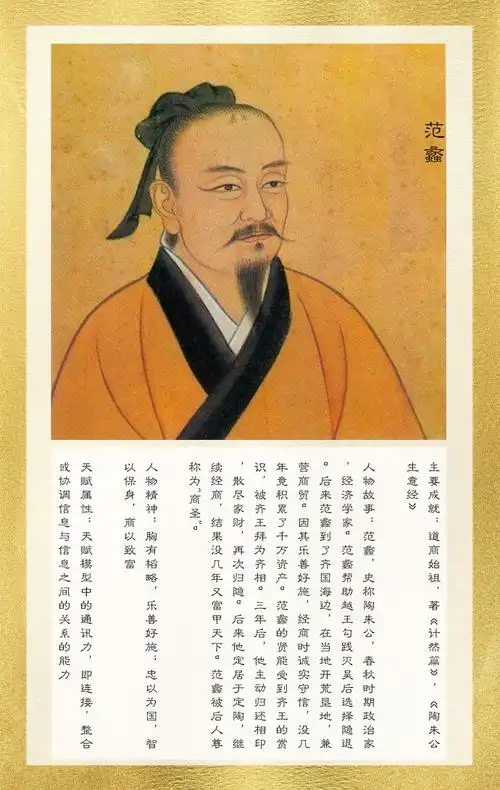 范蠡
主要成就：道商始祖，著《计然篇》，《陶朱公
生意经》
人物故事：范蠡，史称陶朱公，春秋时期政治家
，经济学家。范蠡帮助越王勾践灭吴后选择隐退
。后来范蠡到了齐国海边，在当地开荒垦地，兼
营商贸。因其乐善好施，经商时诚实守信，没几
年竟积累了千万资产。范蠡的贤能受到齐王的赏
识，被齐王拜为齐相。三年后，他主动归还相印
，散尽家财，再次归隐。后来他定居于定陶，继
续经商，结果没几年又富甲天下。范蠡被后人尊
称为“商圣”。
人物精神：胸有韬略，乐善好施；忠以为国，智
以保身，商以致富
天赋属性：天赋模型中的通讯力，即连接，整合
或协调信息与信息之间的关系的能力